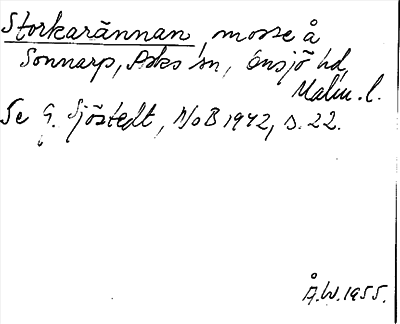 Storkarännan, mosse å
Sonnarp, Asks sn, Onsjö hd,
Malm. l.
Se G. Sjöstedt, NoB 1942, s. 22.
Å.W. 1955.